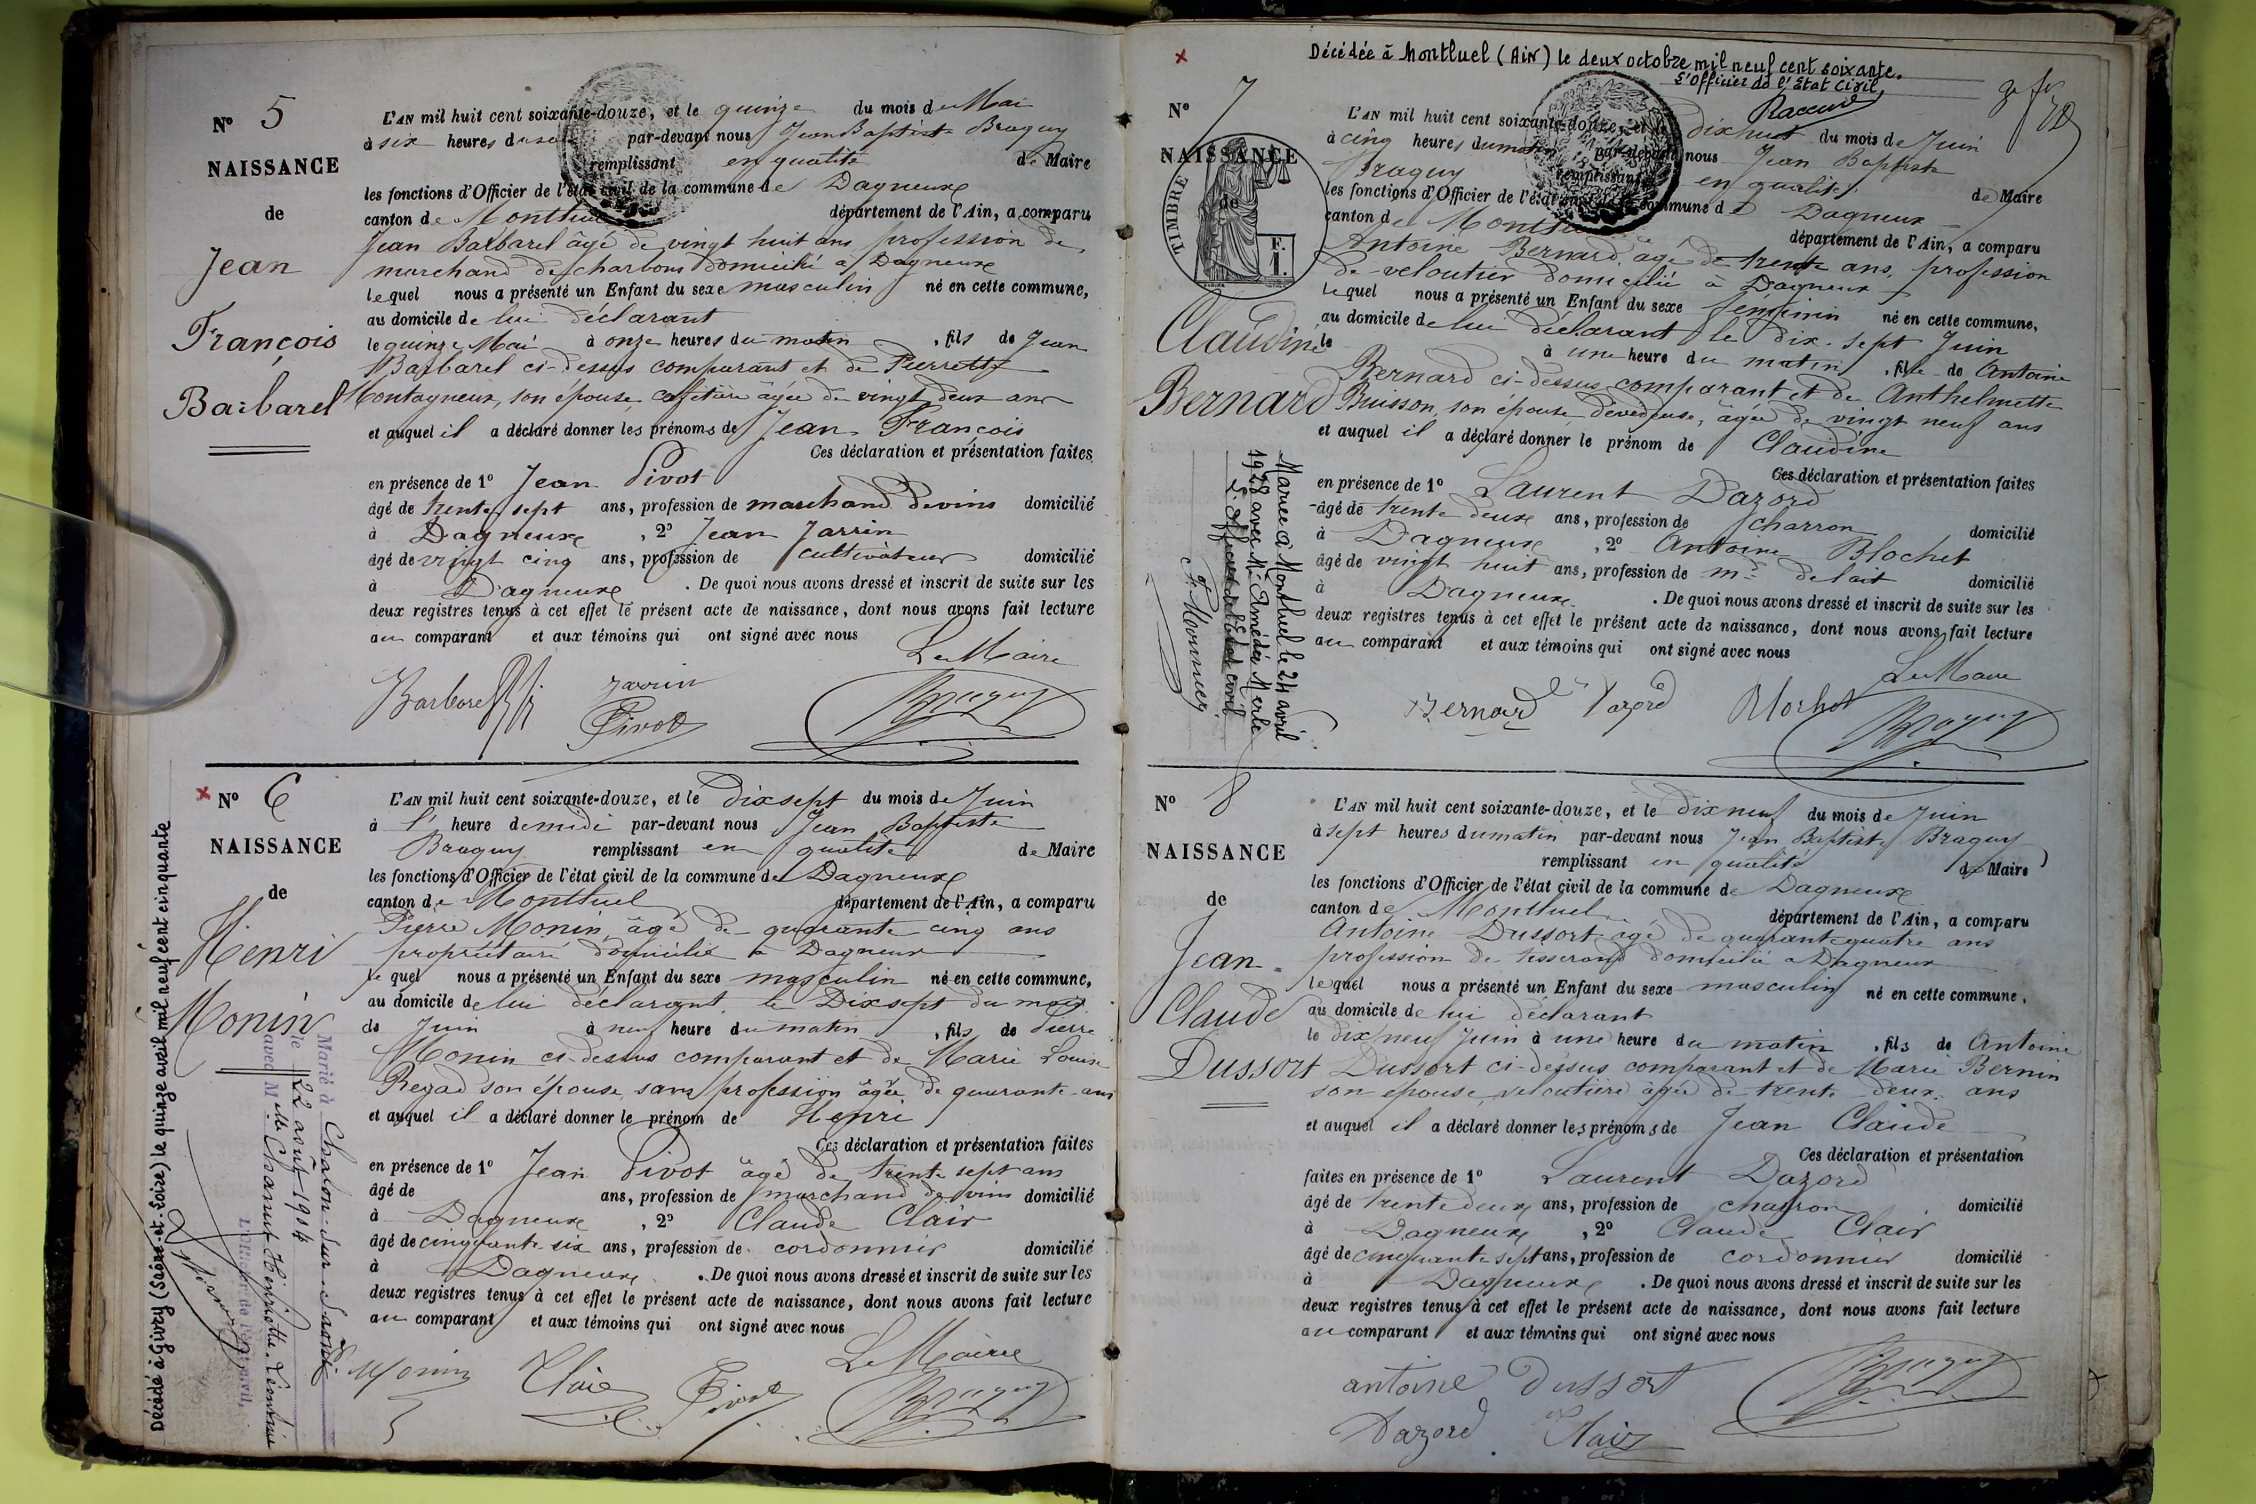 N° 5
NAISSANCE
de
Jean
François
Barbarel
L'AN mil huit cent soixante-douze, et le quinze du mois de Mai
à six heures du soir par-devant nous Jean Baptiste Braguy
remplissant en qualité de Maire
les fonctions d'Officier de l'état civil de la commune de Dagneux
canton de Montluel département de l'Ain, a comparu
Jean Barbarel âgé de vingt huit ans profession de
marchand de charbons domicilié à Dagneux
lequel nous a présenté un Enfant du sexe masculin né en cette commune,
au domicile de lui déclarant
le quinze Mai à onze heures du matin, fils de Jean
Barbarel ci-dessus comparant et de Pierrette
Montagneux, son épouse, cafetière âgée de vingt deux ans
et auquel il a déclaré donner les prénoms de Jean François
Ces déclaration et présentation faites
en présence de 1° Jean Pivot
âgé de trente sept ans, profession de marchand de vins domicilié
à Dagneux, 2° Jean Jarrin
âgé de vingt cinq ans, profession de cultivateur domicilié
à Dagneux. De quoi nous avons dressé et inscrit de suite sur les
deux registres tenus à cet effet le présent acte de naissance, dont nous avons fait lecture
au comparant et aux témoins qui ont signé avec nous
Le Maire
Barbarel Jarrin
Pivot Braguy
N° 6
NAISSANCE
de
Henri
Monin
L'AN mil huit cent soixante-douze, et le dix sept du mois de Juin
à l' heure de midi par-devant nous Jean Baptiste
Braguy remplissant en qualité de Maire
les fonctions d'Officier de l'état civil de la commune de Dagneux
canton de Montluel département de l'Ain, a comparu
Pierre Monin, âgé de quarante cinq ans
propriétaire domicilié à Dagneux
le quel nous a présenté un Enfant du sexe masculin né en cette commune,
au domicile de lui déclarant, le Dix sept du mois
de Juin à neuf heure du matin, fils de Pierre
Monin ci-dessus comparant et de Marie Louise
Regad son épouse, sans profession âgée de quarante ans
et auquel il a déclaré donner le prénom de Henri
Ces déclaration et présentation faites
en présence de 1° Jean Pivot âgé de trente sept ans
âgé de ans, profession de marchand de vins domicilié
à Dagneux, 2° Claude Clair
âgé de cinquante six ans, profession de cordonnier domicilié
à Dagneux. De quoi nous avons dressé et inscrit de suite sur les
deux registres tenus à cet effet le présent acte de naissance, dont nous avons fait lecture
au comparant et aux témoins qui ont signé avec nous
Le Maire
Monin Clair Pivot Braguy
Marié à Chalon-sur-Saône
le 22 août 1904
avec Melle Chanut Henriette
L'Officier de l'Etat civil,
Décédé à Givry (Saône-et-Loire) le quinze avril mil neuf cent cinquante
Décédée à Montluel (Ain) le deux octobre mil neuf cent soixante.
L'Officier de l'Etat Civil
N° 7
NAISSANCE
de
TIMBRE
F.
1.
Claudine
Bernard
L'AN mil huit cent soixante-douze, et le dix huit du mois de Juin
à cinq heures du matin par-devant nous Jean Baptiste
Braguy remplissant en qualité de Maire
les fonctions d'Officier de l'état civil de la commune de Dagneux
canton de Montluel département de l'Ain, a comparu
Antoine Bernard, âgé de trente ans, profession
de veloutier domicilié à Dagneux
lequel nous a présenté un Enfant du sexe féminin né en cette commune,
au domicile de lui déclarant le dix-sept Juin
le à une heure du matin, fille de Antoine
Bernard ci-dessus comparant et de Anthelmette
Buisson, son épouse, dévideuse, âgée de vingt neuf ans
et auquel il a déclaré donner le prénom de Claudine
Ces déclaration et présentation faites
en présence de 1° Laurent Dazord
âgé de trente deux ans, profession de charron domicilié
à Dagneux, 2° Antoine Blochet
âgé de vingt huit ans, profession de md de lait domicilié
à Dagneux. De quoi nous avons dressé et inscrit de suite sur les
deux registres tenus à cet effet le présent acte de naissance, dont nous avons fait lecture
au comparant et aux témoins qui ont signé avec nous
Le Maire
Bernard Dazord Blochet Braguy
Mariée à Montluel le 24 avril
1928 avec Mr Amédée Merle
L'Officier de l'Etat civil
N° 8
NAISSANCE
de
Jean
Claude
Dussort
L'AN mil huit cent soixante-douze, et le dix neuf du mois de Juin
à sept heures du matin par-devant nous Jean Baptiste Braguy
remplissant en qualité de Maire
les fonctions d'Officier de l'état civil de la commune de Dagneux
canton de Montluel département de l'Ain, a comparu
Antoine Dussort âgé de quarante quatre ans
profession de tisserand domicilié à Dagneux
lequel nous a présenté un Enfant du sexe masculin né en cette commune,
au domicile de lui déclarant
le dix neuf Juin à une heure du matin, fils de Antoine
Dussort ci-dessus comparant et de Marie Bernin
son épouse, veloutière âgée de trente deux ans
et auquel il a déclaré donner les prénoms de Jean Claude
Ces déclaration et présentation
faites en présence de 1° Laurent Dazord
âgé de trente deux ans, profession de charron domicilié
à Dagneux, 2° Claude Clair
âgé de cinquante sept ans, profession de cordonnier domicilié
à Dagneux. De quoi nous avons dressé et inscrit de suite sur les
deux registres tenus à cet effet le présent acte de naissance, dont nous avons fait lecture
au comparant et aux témoins qui ont signé avec nous
antoine Dussort Braguy
Dazord Clair